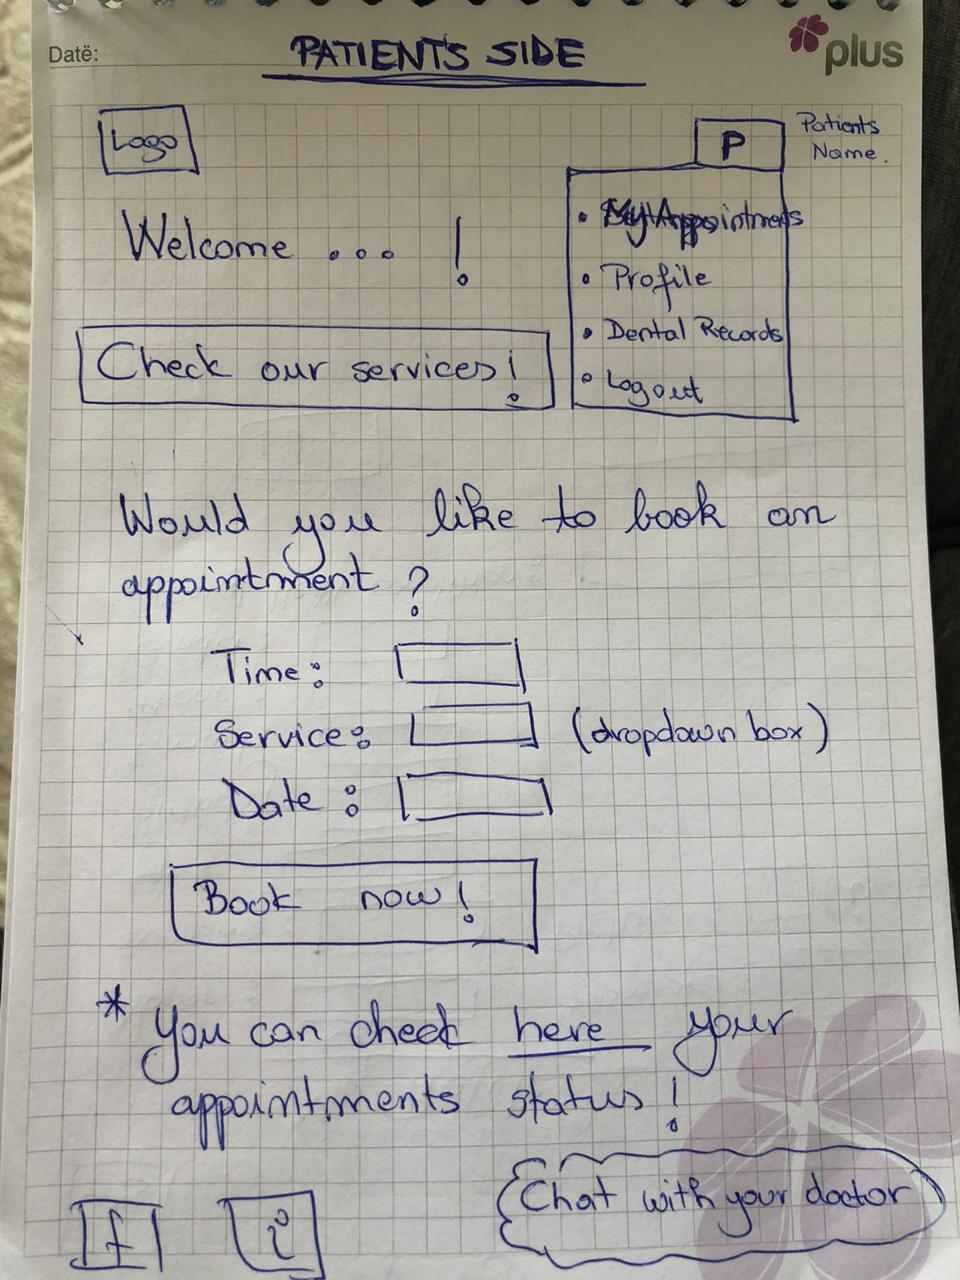 Datë:
PATIENT'S SIDE
plus
Logo
P
Patients
Name.
Welcome ... !
• My Appointments
• Profile
• Dental Records
• Logout
Check our services!
Would you like to book an
appointment?
Time:
Service: (dropdown box)
Date:
Book now!
* You can check here your
appointments status!
Chat with your doctor
f
i